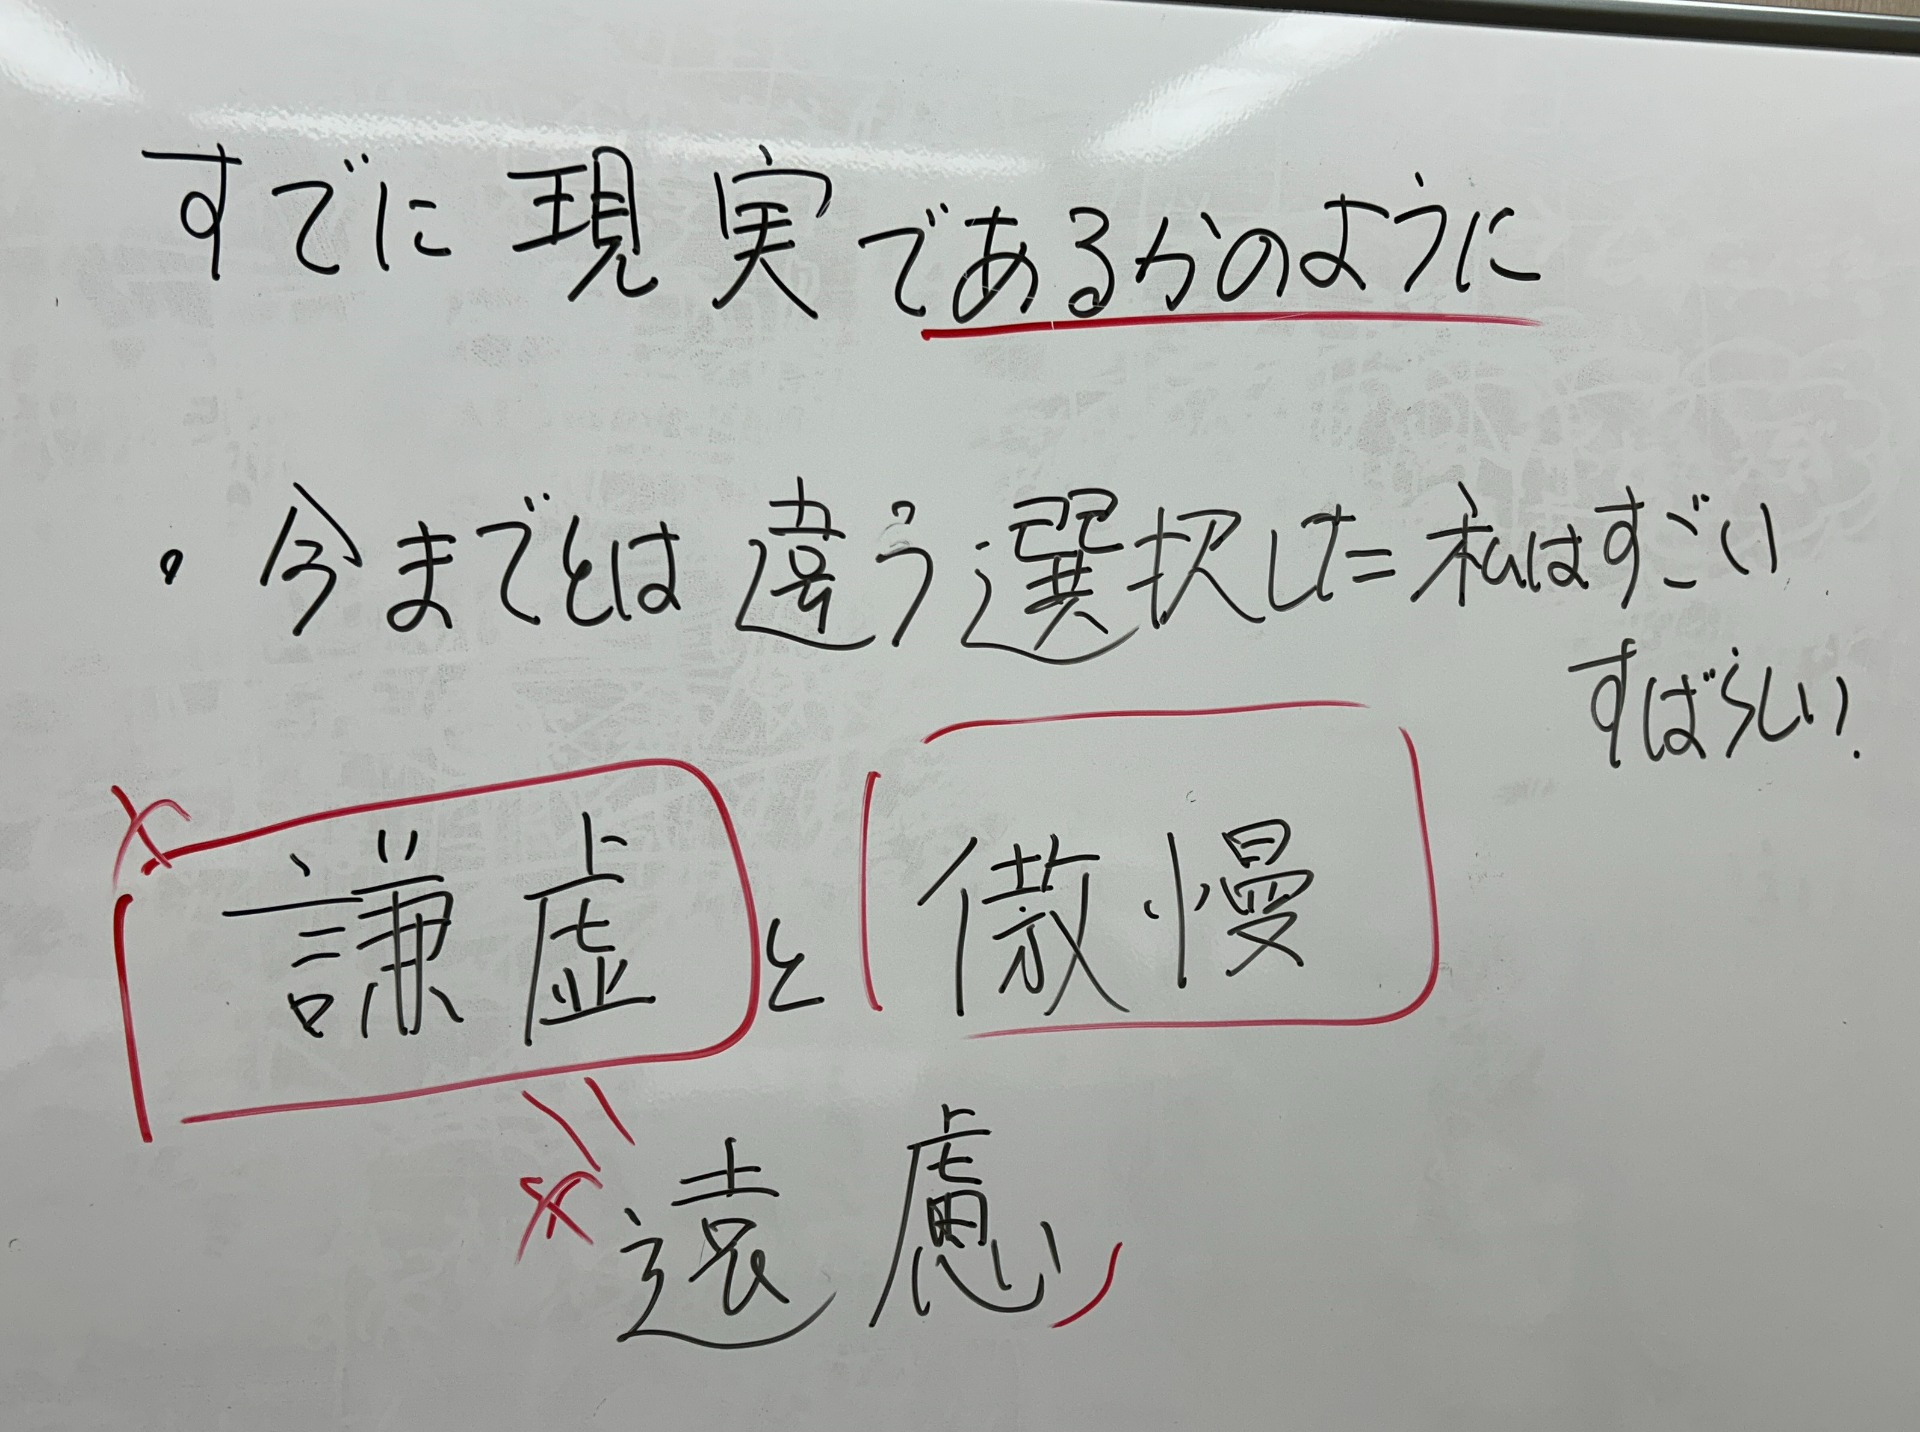 すでに現実であるかのように
・今までとは違う選択した私はすごい
すばらしい.
謙虚と傲慢
遠慮